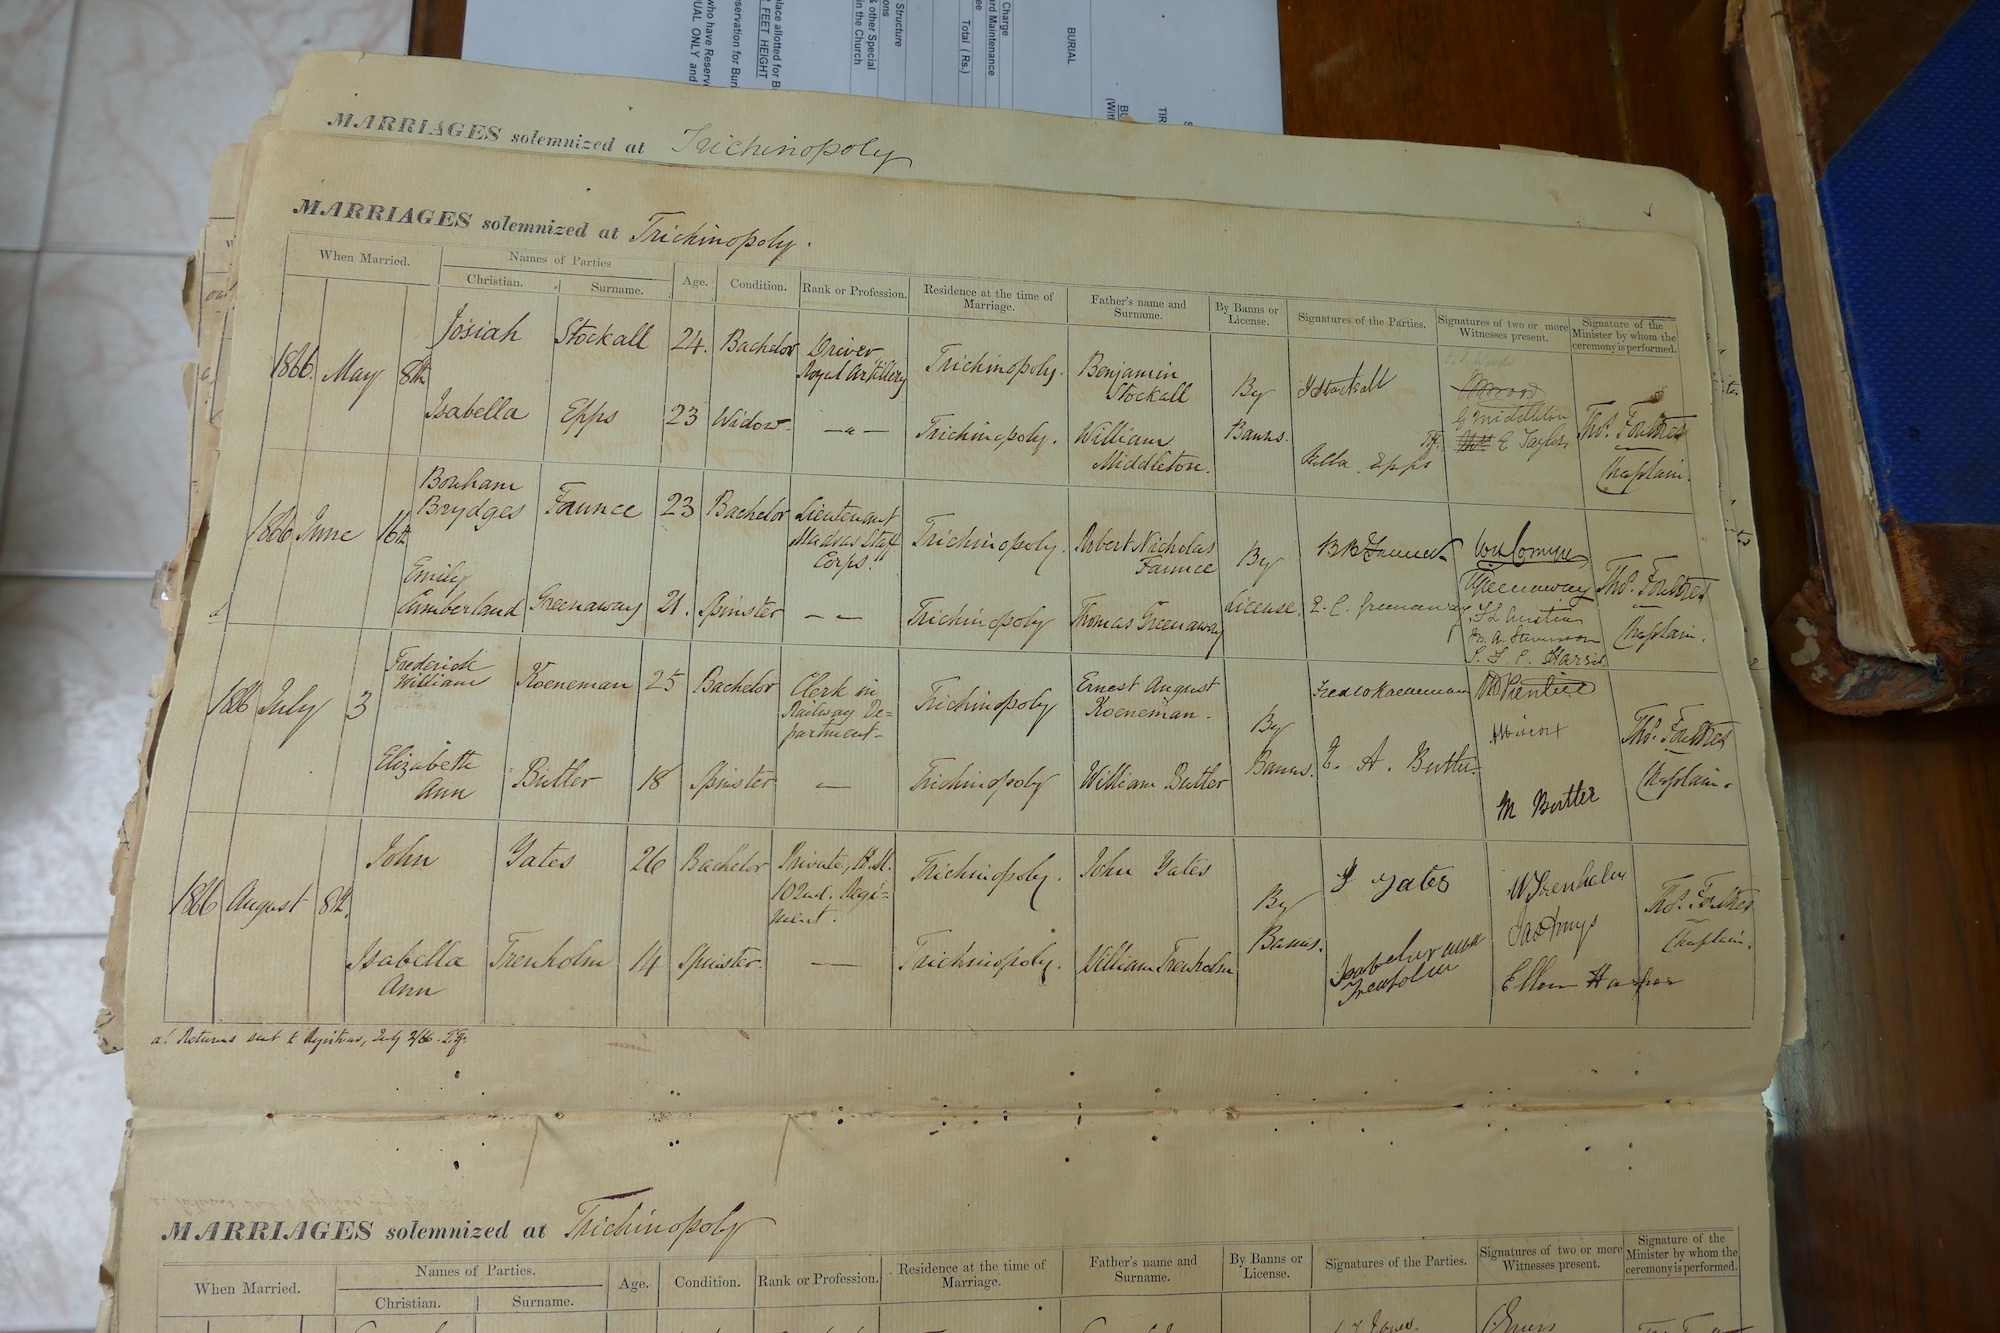 BURIAL
Structure
& other Special
in the Church
Charge
Maintenance
Total (Rs.)
FEET HEIGHT
who have Reserve
UAL ONLY and
MARRIAGES solemnized at Trichinopoly
MARRIAGES solemnized at Trichinopoly.
When Married.
Names of Parties
Christian.
Surname.
Age.
Condition.
Rank or Profession.
Residence at the time of
Marriage.
Father's name and
Surname.
By Banns or
License.
Signatures of the Parties.
Signatures of two or more
Witnesses present.
Signature of the
Minister by whom the
ceremony is performed.
1866. May 8th
Josiah Stockall 24. Bachelor
Driver
Royal Artillery
Trichinopoly.
Benjamin
Stockall
By
Banns.
J Stockall
Isabella Epps 23 Widow — " —
Trichinopoly.
William
Middleton.
Epps
G Middleton
E Taylor
Thos. Foulkes
Chaplain.
1866 June 16th
Bonham
Brydges
Faunce 23 Bachelor
Lieutenant
Madras Staff
Corps.
Trichinopoly.
Robert Nicholas
Faunce
By
License.
B B Faunce
Emily
Cumberland
Greenaway 21. Spinster — —
Trichinopoly
Thomas Greenaway
E. C. Greenaway
Greenaway
Harris
Thos. Foulkes
Chaplain.
1866 July 3
Frederick
William
Koeneman 25 Bachelor
Clerk in
Railway De=
partment-
Trichinopoly
Ernest August
Koeneman.
By
Banns.
Fred W Koeneman
Elizabeth
Ann
Butler 18 Spinster —
Trichinopoly
William Butler
E. A. Butler.
M Butler
Thos. Foulkes
Chaplain.
1866 August 8th.
John Yates 26 Bachelor
Private, H. M.
102nd. Regi=
ment.
Trichinopoly.
John Yates
By
Banns.
J Yates
Isabella
Ann
Trenholm 14 Spinster. —
Trichinopoly.
William Trenholm
W Trenholm
Ellen
Thos. Foulkes
Chaplain.
a. Returns sent to Registrar, July 2/66. T.F.
MARRIAGES solemnized at Trichinopoly
When Married.
Names of Parties.
Christian.
Surname.
Age.
Condition.
Rank or Profession.
Residence at the time of
Marriage.
Father's name and
Surname.
By Banns or
License.
Signatures of the Parties.
Signatures of two or more
Witnesses present.
Signature of the
Minister by whom the
ceremony is performed.